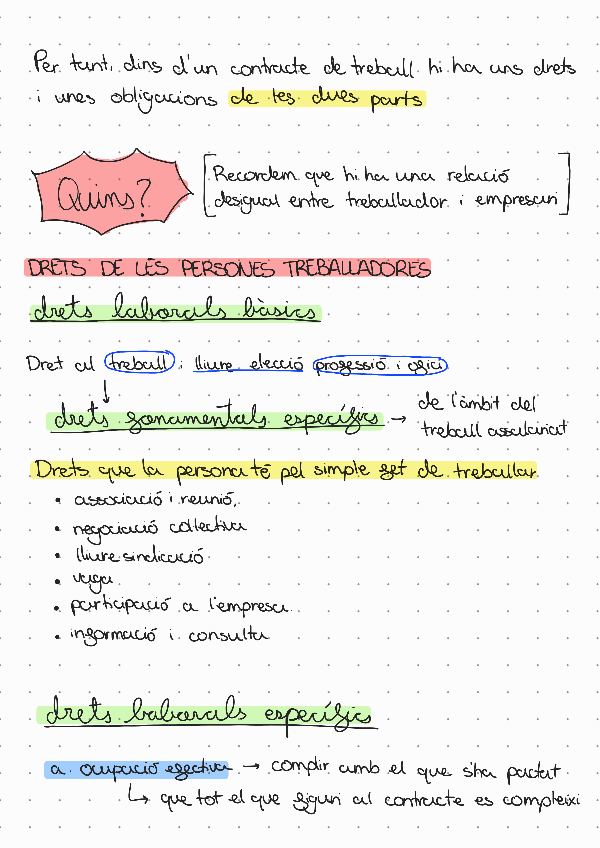 Per tant, dins d'un contracte de treball hi ha uns drets
i unes obligacions de les dues parts
Quins?
[Recordem que hi ha una relació
desigual entre treballador i empresari]
DRETS DE LES PERSONES TREBALLADORES
drets laborals bàsics
Dret al treball i lliure elecció professió i ofici
↓
drets fonamentals específics → de l'àmbit del
treball assalariat
Drets que la persona té pel simple fet de treballar
• associació i reunió,
• negociació col·lectiva
• lliure sindicació
• vaga
• participació a l'empresa
• informació i consulta
drets laborals específics
a. ocupació efectiva → complir amb el que s'ha pactat
↳ que tot el que figuri al contracte es compleixi